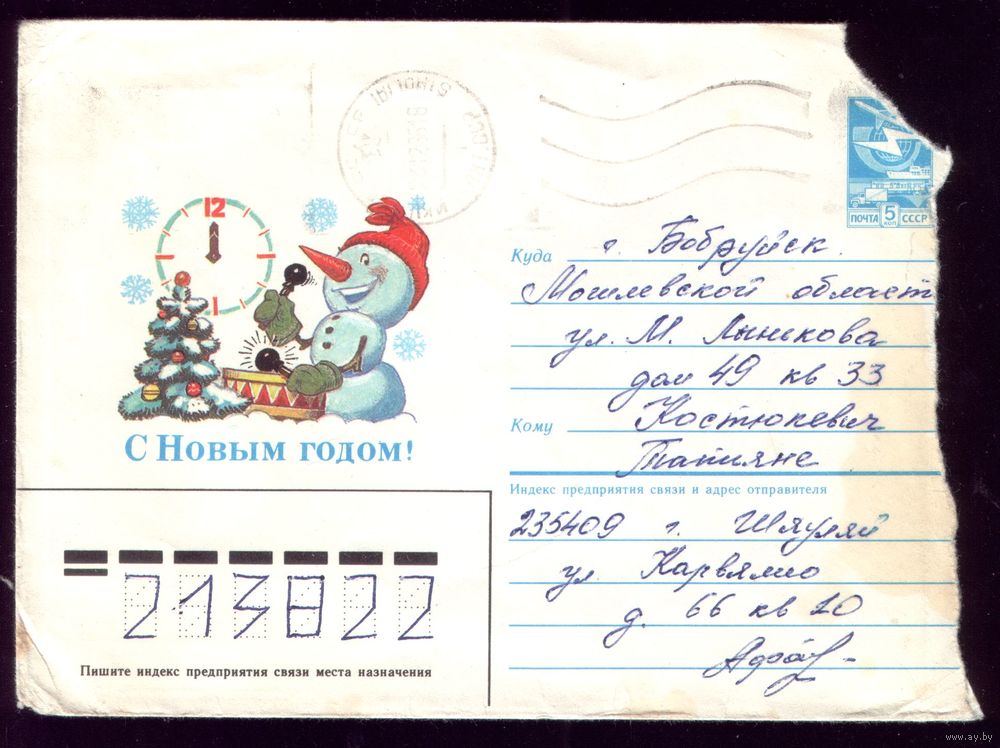 12
ПОЧТА 5 КОП СССР
Куда г. Бобруйск.
Могилевской област
ул. М. Лынькова
дом 49 кв 33
Кому Костюкевич
Татияне
С Новым годом!
Индекс предприятия связи и адрес отправителя
235409 г. Шяуляй
ул Карвялио
д. 66 кв 20
213822
Пишите индекс предприятия связи места назначения
www.ay.by